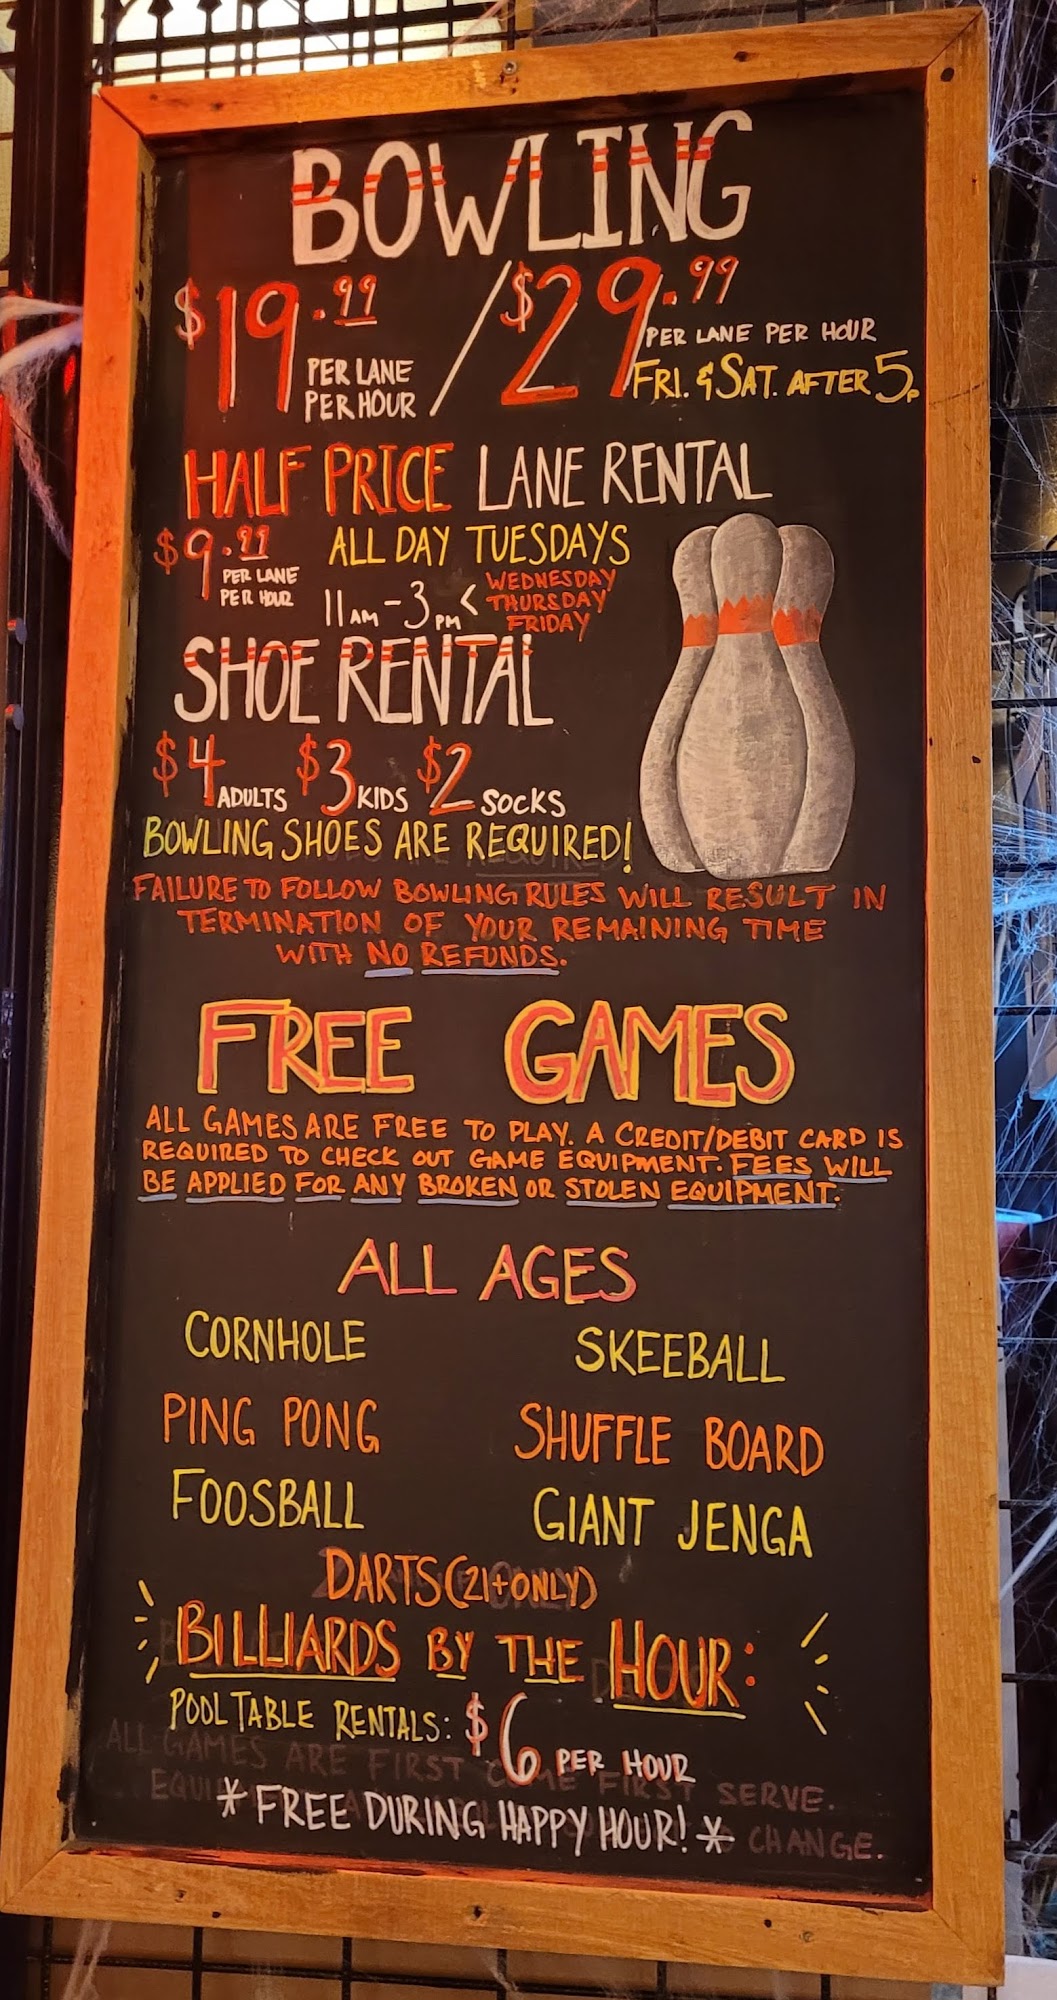 BOWLING
$19.99 PER LANE PER HOUR / $29.99 PER LANE PER HOUR FRI. & SAT. AFTER 5P
HALF PRICE LANE RENTAL
$9.99 PER LANE PER HOUR
ALL DAY TUESDAYS
11AM-3PM < WEDNESDAY THURSDAY FRIDAY
SHOE RENTAL
$4 ADULTS $3 KIDS $2 SOCKS
BOWLING SHOES ARE REQUIRED!
FAILURE TO FOLLOW BOWLING RULES WILL RESULT IN
TERMINATION OF YOUR REMAINING TIME
WITH NO REFUNDS.
FREE GAMES
ALL GAMES ARE FREE TO PLAY. A CREDIT/DEBIT CARD IS
REQUIRED TO CHECK OUT GAME EQUIPMENT. FEES WILL
BE APPLIED FOR ANY BROKEN OR STOLEN EQUIPMENT.
ALL AGES
CORNHOLE SKEEBALL
PING PONG SHUFFLE BOARD
FOOSBALL GIANT JENGA
DARTS (21+ ONLY)
BILLIARDS BY THE HOUR:
POOL TABLE RENTALS: $6 PER HOUR
ALL GAMES ARE FIRST COME FIRST SERVE.
*FREE DURING HAPPY HOUR!*
CHANGE.